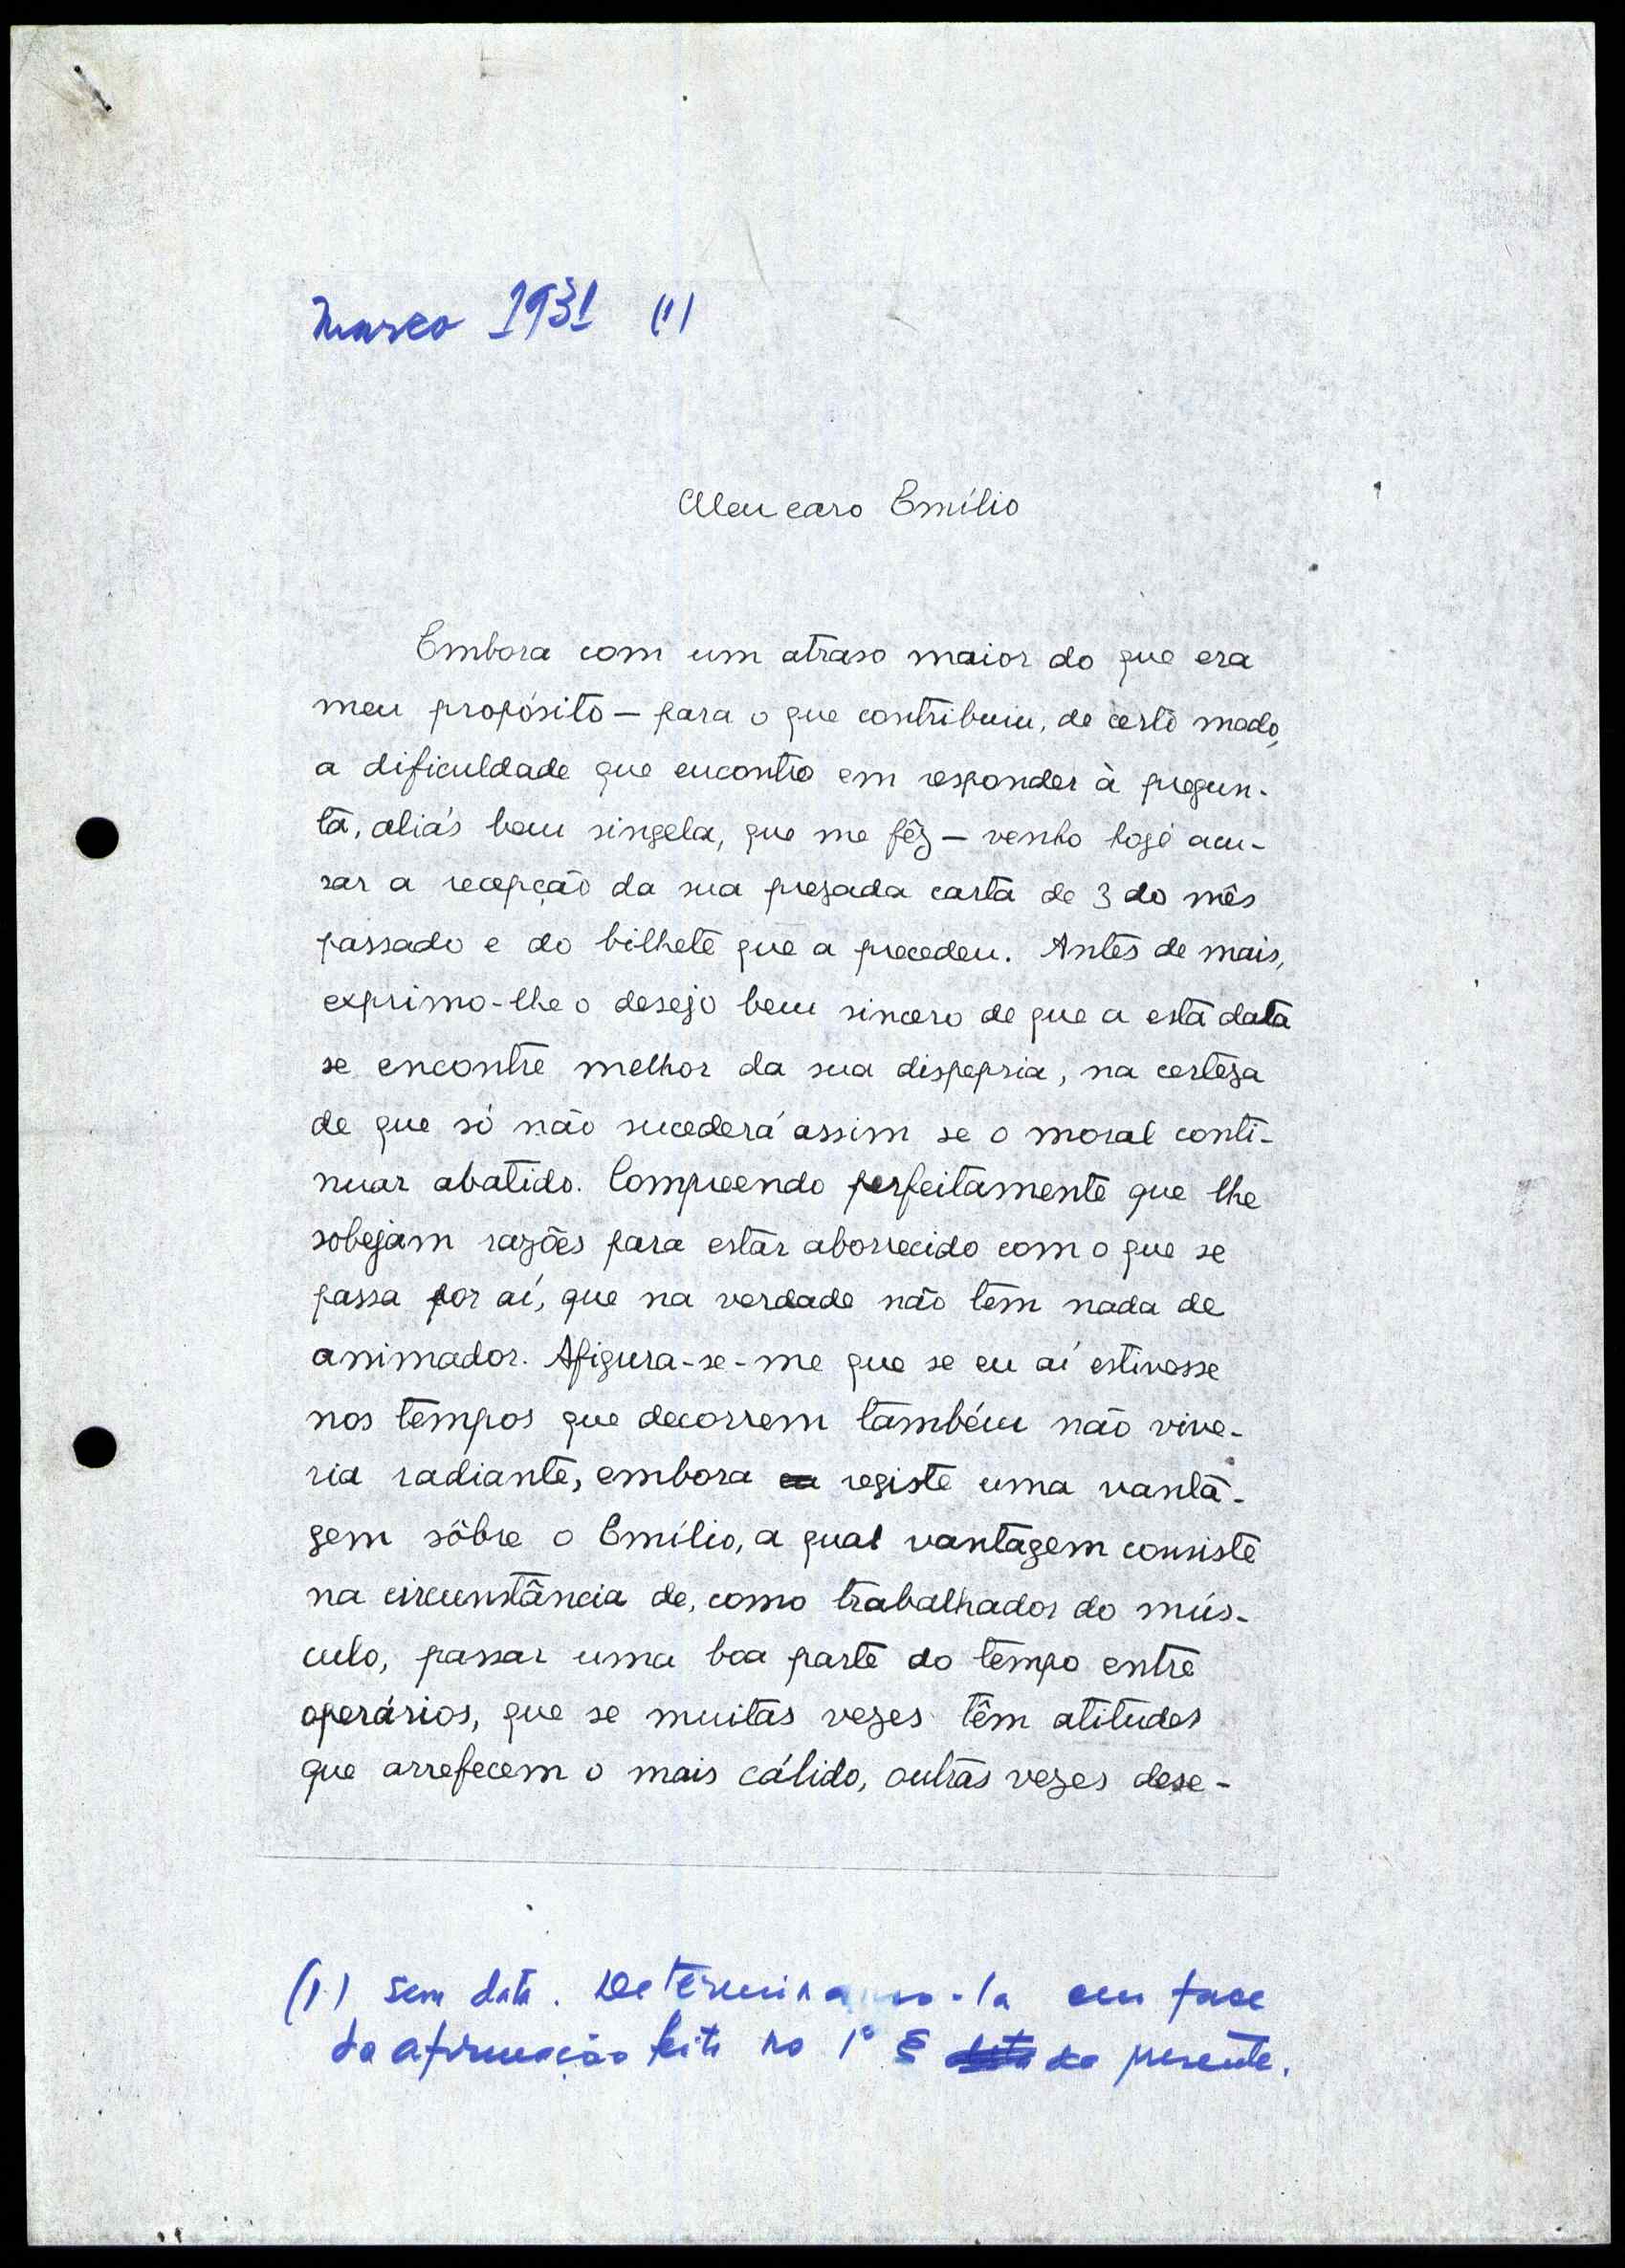 Março 1931 (1)
Meu caro Emílio
Embora com um atraso maior do que era
meu propósito — para o que contribuiu, de certo modo,
a dificuldade que encontro em responder à pregun-
ta, aliás bem singela, que me fêz — venho hoje acu-
sar a recepção da sua prezada carta de 3 do mês
passado e do bilhete que a precedeu. Antes de mais,
exprimo-lhe o desejo bem sincero de que a esta data
se encontre melhor da sua dispepsia, na certeza
de que só não sucederá assim se o moral conti-
nuar abatido. Compreendo perfeitamente que lhe
sobejam razões para estar aborrecido com o que se
passa por aí, que na verdade não tem nada de
animador. Afigura-se-me que se eu aí estivesse
nos tempos que decorrem também não vive-
ria radiante, embora registe uma vanta-
gem sôbre o Emílio, a qual vantagem consiste
na circunstância de, como trabalhador do mús-
culo, passar uma boa parte do tempo entre
operários, que se muitas vezes têm atitudes
que arrefecem o mais cálido, outras vezes dese-
(1) Sem data. Determinamo-la em face
da afirmação feita no 1º § da presente.